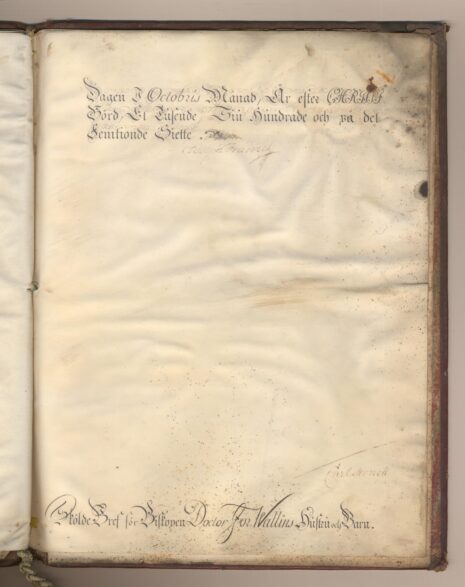 Dagen J Octobris Månad, År efter CHRISTI
Börd, Et Tusende, Siu Hundrade och på det
Femtionde Siette.
Sköldebref för Biskopen Doctor Jör Wallins Hustru och Barn.